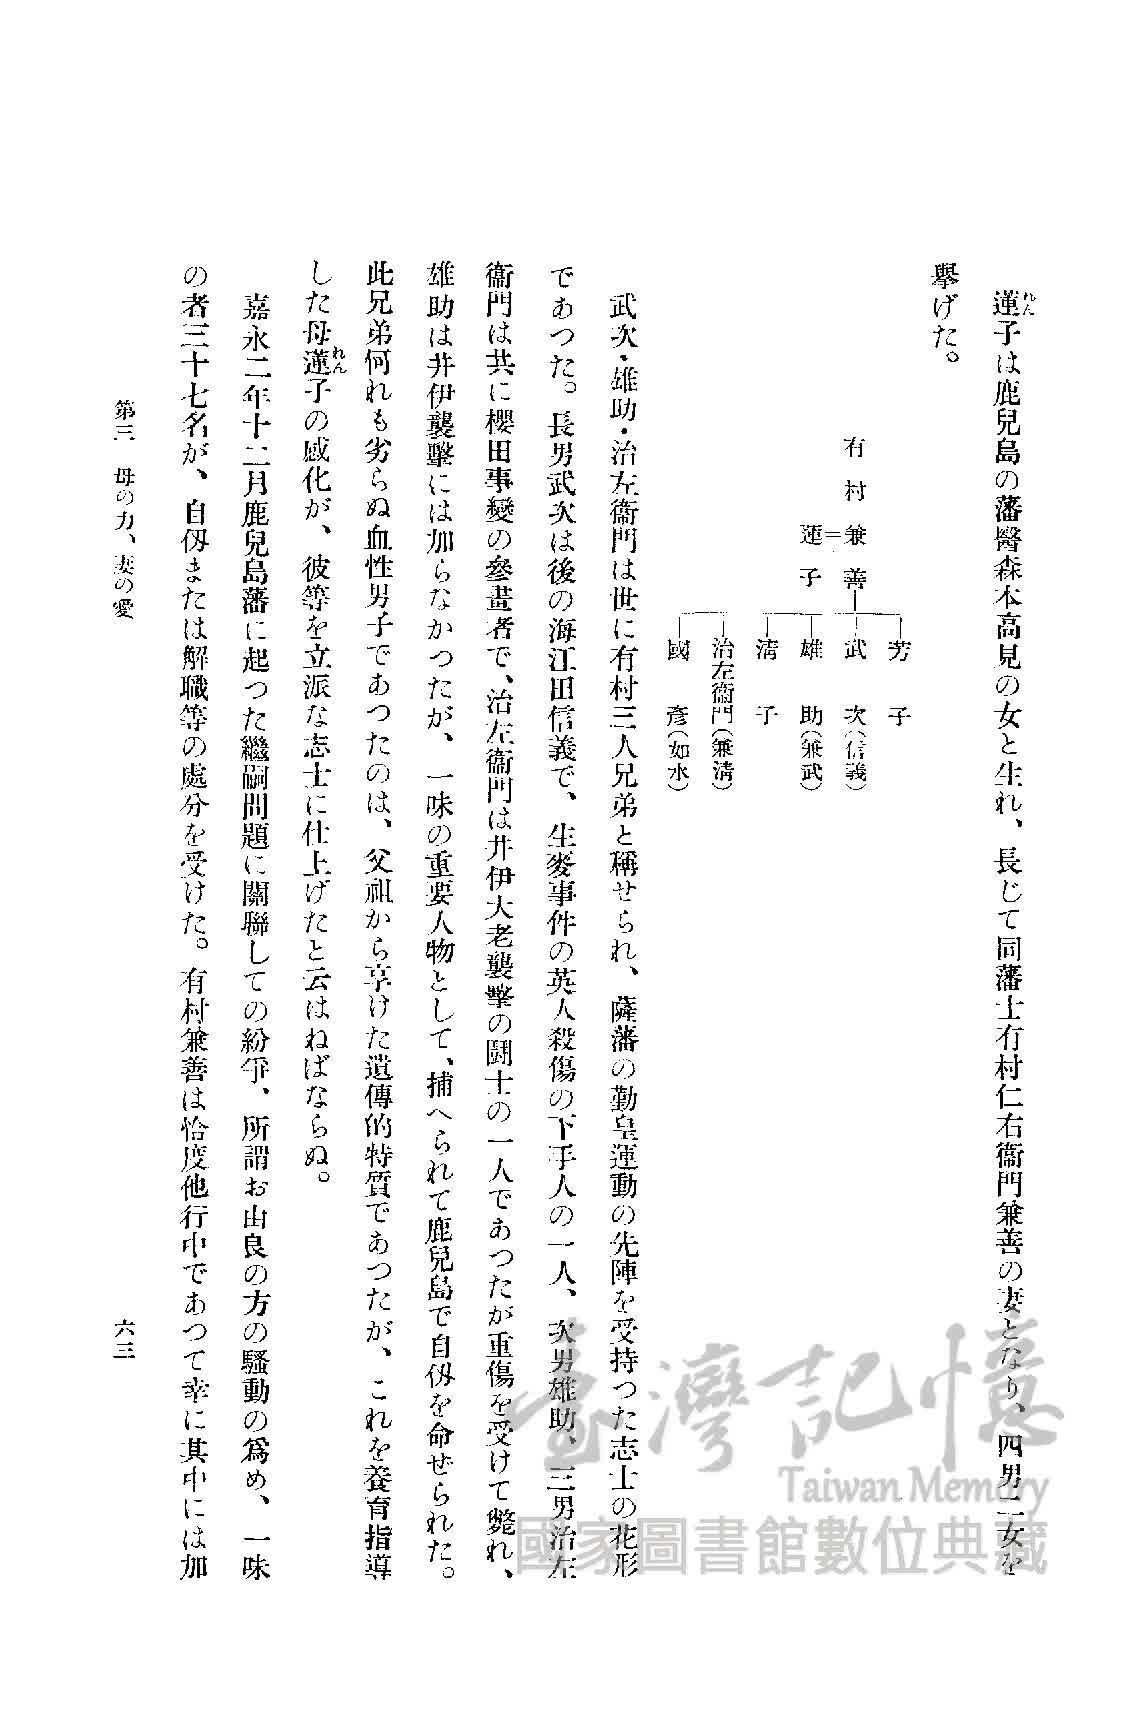 蓮子は鹿兒島の藩醫森本高見の女と生れ、長じて同藩士有村仁右衞門兼善の妻となり、四男二女を
れん
擧げた。
有村兼善
蓮子
芳子
武次(信義)
雄助(兼武)
淸子
治左衞門(兼淸)
國彥(如水)
武次・雄助・治左衞門は世に有村三人兄弟と稱せられ、薩藩の勤皇運動の先陣を受持つた志士の花形
であつた。長男武次は後の海江田信義で、生麥事件の英人殺傷の下手人の一人、次男雄助、三男治左
衞門は共に櫻田事變の參畫者で、治左衞門は井伊大老襲擊の鬪士の一人であつたが重傷を受けて斃れ、
雄助は井伊襲擊には加らなかつたが、一味の重要人物として、捕へられて鹿兒島で自刃を命ぜられた。
此兄弟何れも劣らぬ血性男子であつたのは、父祖から享けた遺傳的特質であつたが、これを養育指導
した母蓮子の感化が、彼等を立派な志士に仕上げたと云はねばならぬ。
れん
嘉永二年十二月鹿兒島藩に起つた繼嗣問題に關聯しての紛爭、所謂お由良の方の騷動の爲め、一味
の者三十七名が、自刃または解職等の處分を受けた。有村兼善は恰度他行中であつて幸に其中には加
第三 母の力、妻の愛
六三
臺灣記憶
Taiwan Memory
國家圖書館數位典藏